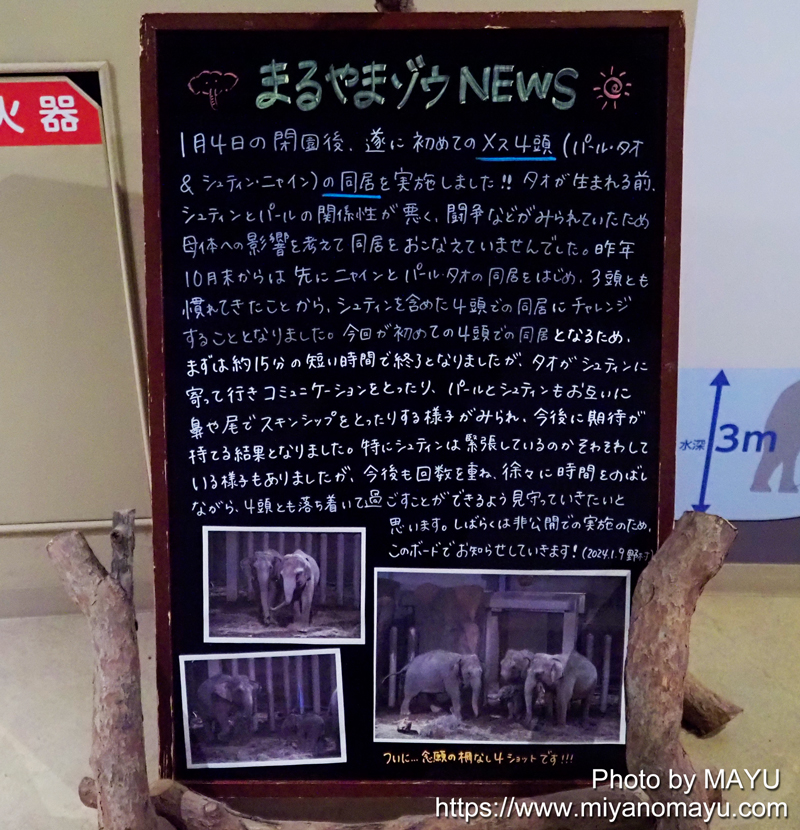 火器
まるやまゾウNEWS
1月4日の閉園後、遂に初めてのメス4頭(パール・タオ
& シュティン・ニャイン)の同居を実施しました!! タオが生まれる前、
シュティンとパールの関係性が悪く、闘争などがみられていたため
母体への影響を考えて同居をおこなえていませんでした。昨年
10月末からは先にニャインとパール・タオの同居をはじめ、3頭とも
慣れてきたことから、シュティンを含めた4頭での同居にチャレンジ
することとなりました。今回が初めての4頭での同居となるため、
まずは約15分の短い時間で終了となりましたが、タオがシュティンに
寄って行きコミュニケーションをとったり、パールとシュティンもお互いに
鼻や尾でスキンシップをとったりする様子がみられ、今後に期待が
持てる結果となりました。特にシュティンは緊張しているのかそわそわして
いる様子もありましたが、今後も回数を重ね、徐々に時間をのばし
ながら、4頭とも落ち着いて過ごすことができるよう見守っていきたいと
思います。しばらくは非公開での実施のため、
このボードでお知らせしていきます!(2024.1.9 野
ついに…念願の柵なし4ショットです!!!
水深 3m
Photo by MAYU
https://www.miyanomayu.com